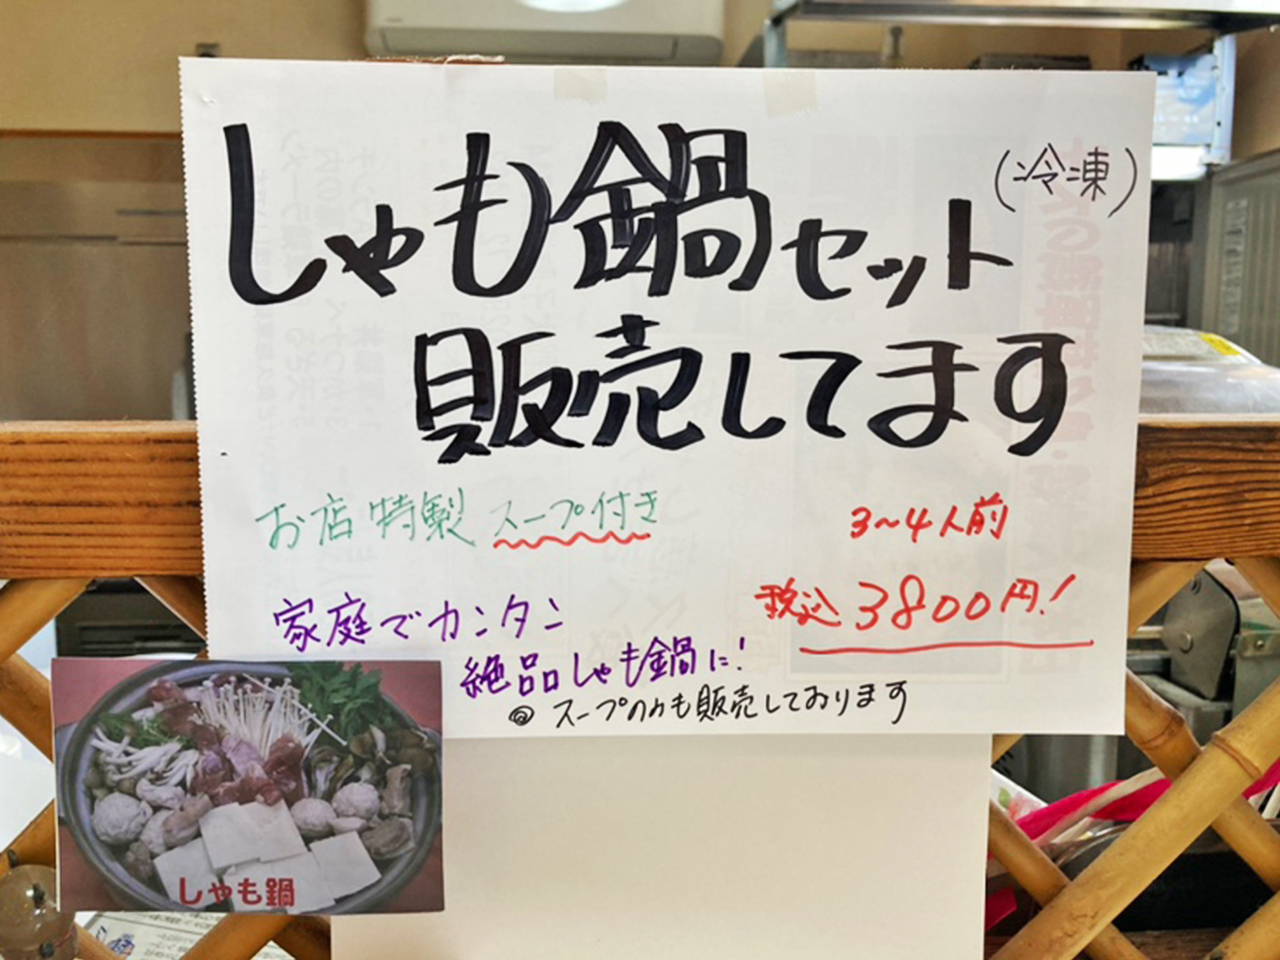 しゃも鍋セット(冷凍)
販売してます
お店特製スープ付き
3〜4人前
税込3800円!
家庭でカンタン
絶品しゃも鍋に!
◎スープのみも販売しております
しゃも鍋